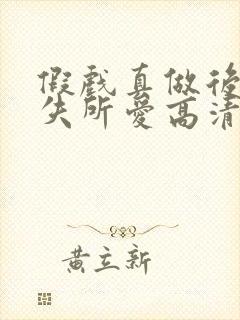 假戲真做後
失所愛高清
黃立新